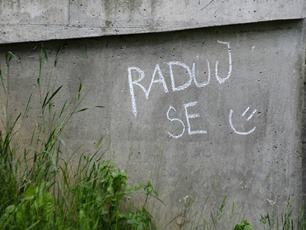 RADUJ
SE